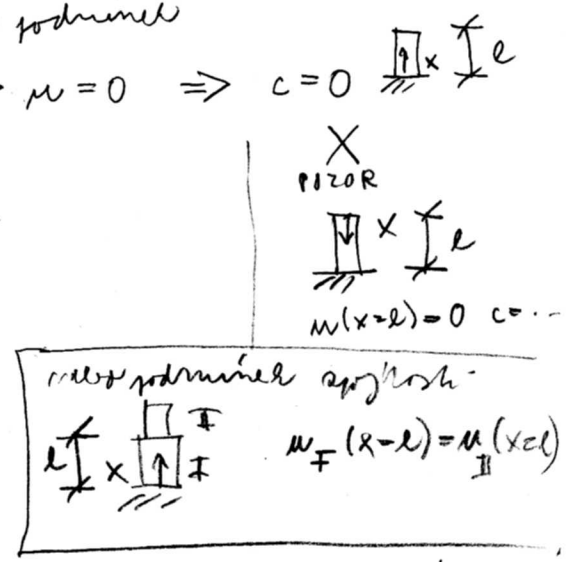 podmínek
u = 0 ⇒ c = 0 x l
X
POZOR
x l
u(x=l)=0 c=...
nebo podmínek spojitosti
l x II I
u_I (x=l) = u_II (x=l)